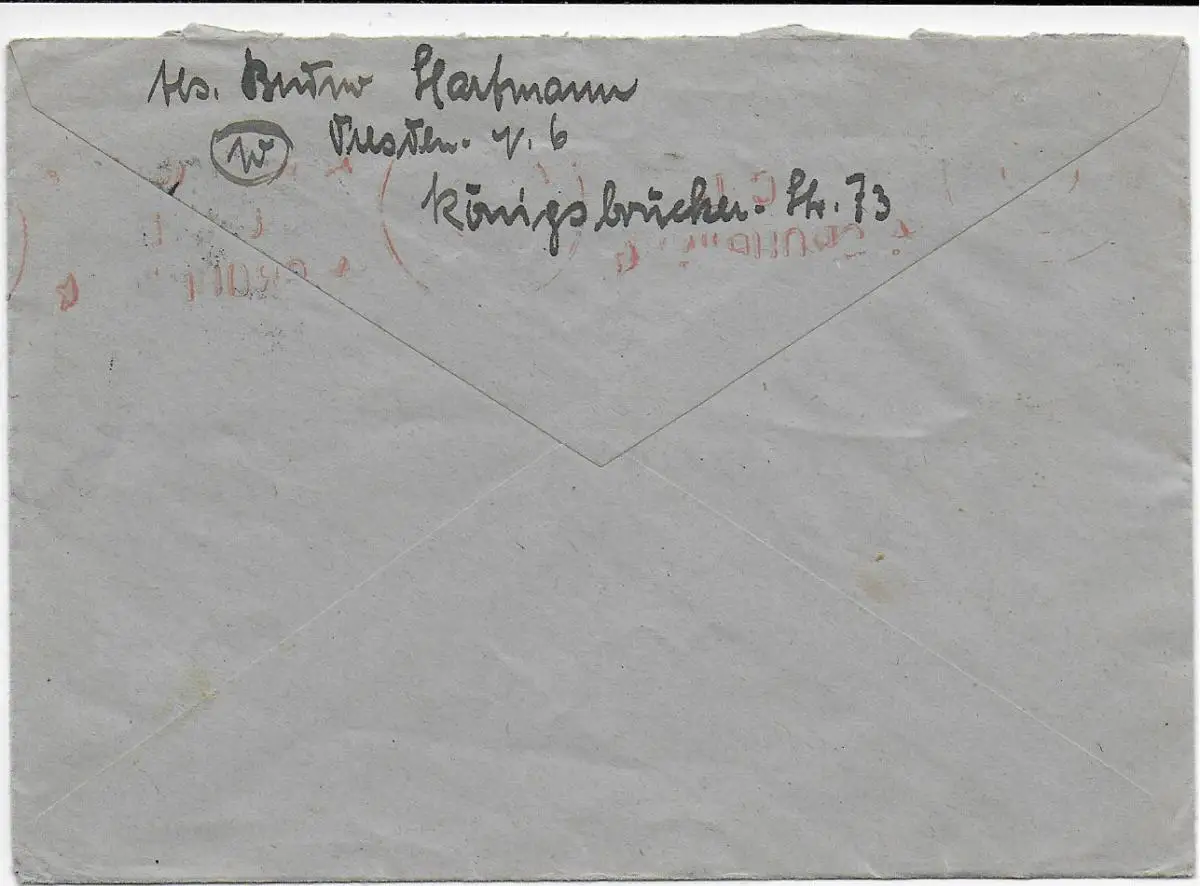 Abs. Bruno Hartmann
10 Dresden. N. 6
Königsbrücker. Str. 73